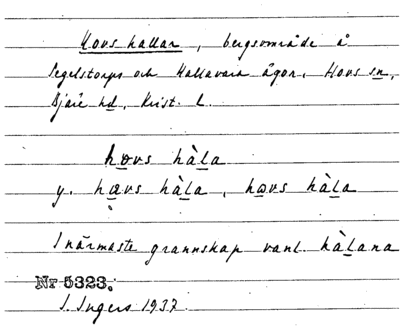 Hovs hallar, bergsområde å
Segelstorps och Hallavara ägor, Hovs sn,
Bjäre hd, Krist. l.
hɵvs hàla
y. hævs hàla, hɵvs hàla
I närmaste grannskap vanl. hàlana
Nr 5323.
I. Ingers 1937